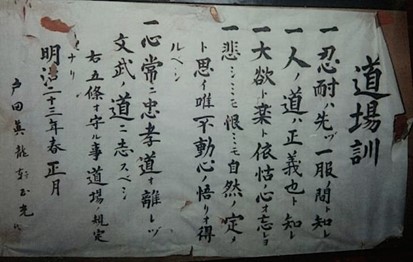 道場訓
一忍耐ハ先ヅ一服ノ間ト知レ
一人ノ道ハ正義也ト知レ
一大欲ト楽ト依怙ノ心ヲ忘レヨ
一悲シミモ恨ミモ自然ノ定メ
ト思イ唯不動心ノ悟リヲ得
ルベシ
一心常ニ忠孝道ヲ離レヅ
文武ノ道ニ志スベシ
右五條ヲ守ル事道場ノ規定
ナリ
明治二十三年春正月
戸田眞龍軒正光